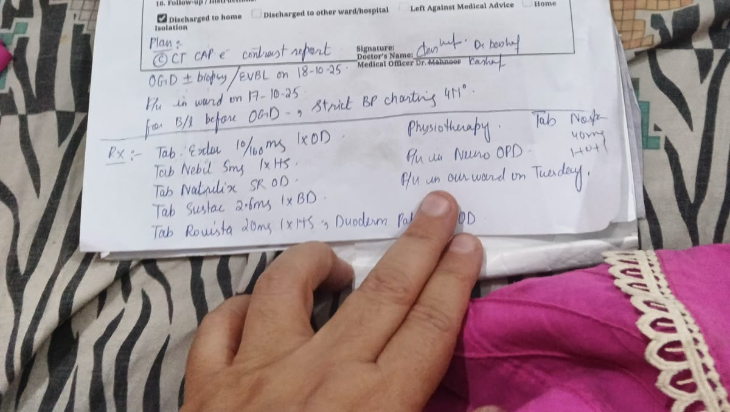 10. Follow-up / Instructions
Discharged to home Discharged to other ward/hospital Left Against Medical Advice Home
Isolation
Plan:-
CT CAP c̄ contrast report
Signature:
Doctor's Name: Dr Kashaf
Medical Officer Dr. Mahnoor Kashaf
OGD ± biopsy / EVBL on 18-10-25.
F/u in ward on 17-10-25
for B/I before OGD -, Strict BP charting 4H°
Rx:- Tab. Exlor 10/160mg 1xOD.
Tab Nebil 5mg 1xHS.
Tab Natrilix SR OD.
Tab Sustac 2.6mg 1xBD
Tab Rovista 20mg 1xHS, Duoderm OD
Physiotherapy.
F/u in Neuro OPD.
F/u in our ward on Tuesday.
Tab
40mg
1+0+1